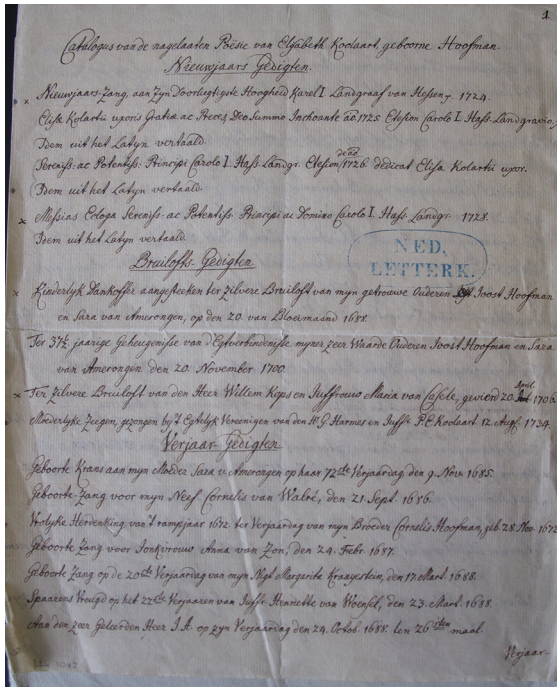 1
Catalogus van de nagelaaten Poësie van Elisabeth Koolaart, geboorne Hoofman.
Nieuwjaars Gedigten.
x Nieuwjaars-Zang, aan zyn Doorlugtigste Hoogheid Karel I Landgraaf van Hessen, 1724.
Elisæ Kolartii uxoris Gratiæ ac Preces, Deo Summo Inchoante aō 1725 Etesion Carolo I. Hass. Landgravio.
Idem uit het Latyn vertaald.
Sereniss: ac Potentiss: Principi Carolo I. Hass. Landgr. Etesion 1726 dedicat Elisa Kolartii uxor.
Idem uit het Latyn vertaald.
x Messias Ecloga Sereniss. ac Potentiss. Principi ac Domino Carolo I. Hass. Landgr. 1728.
Idem uit het Latyn vertaald.
NED.
LETTERK.
Bruilofts-Gedigten
x Kinderlyk Dankoffer aangesteeken ter zilvere Bruiloft van myn getrouwe Ouderen Joost Hoofman
en Sara van Amerongen, op den 20 van Bloeimaand 1688.
Ter 37½ jaarige Geheugenisse van d'Egtverbindenisse myner zeer Waarde Ouderen Joost Hoofman en Sara
van Amerongen den 20. November 1700.
x Ter Zilvere Bruiloft van den Heer Willem Kops en Juffrouw Maria van Casele, gevierd 20. April 1706.
Moederlyke Zeegen, gezongen by 't Egtelyk Vereenigen van den Hr. G. Harmes en Juffr. P.E. Koolaart. 12. Augt. 1734.
Verjaar-Gedigten
Geboorte Krans aan myn Moeder Sara v. Amerongen op haar 72ste Verjaardag, den 9. Nov. 1685.
Geboorte Zang voor myn Neef Cornelis van Walré, den 21. Sept. 1686.
Vrolyke Herdenking van 't rampjaar 1672 ter Verjaardag van myn Broeder Cornelis Hoofman, geb. 28. Nov. 1672
Geboorte Zang voor Jonkvrouw Anna van Zon, den 24. Febr. 1687.
Geboorte Zang op de 20ste Verjaardag van myn Nigt Margarita Kraayestein, den 17. Mart. 1688.
Spaarens Vreugd op het 22ste Verjaaren van Juffr. Henriette van Woensel, den 23. Mart. 1688.
Aan den zeer Geleerden Heer J.A. op zyn Verjaardag den 24. Octob. 1688. ten 26sten maal.
Verjaar-